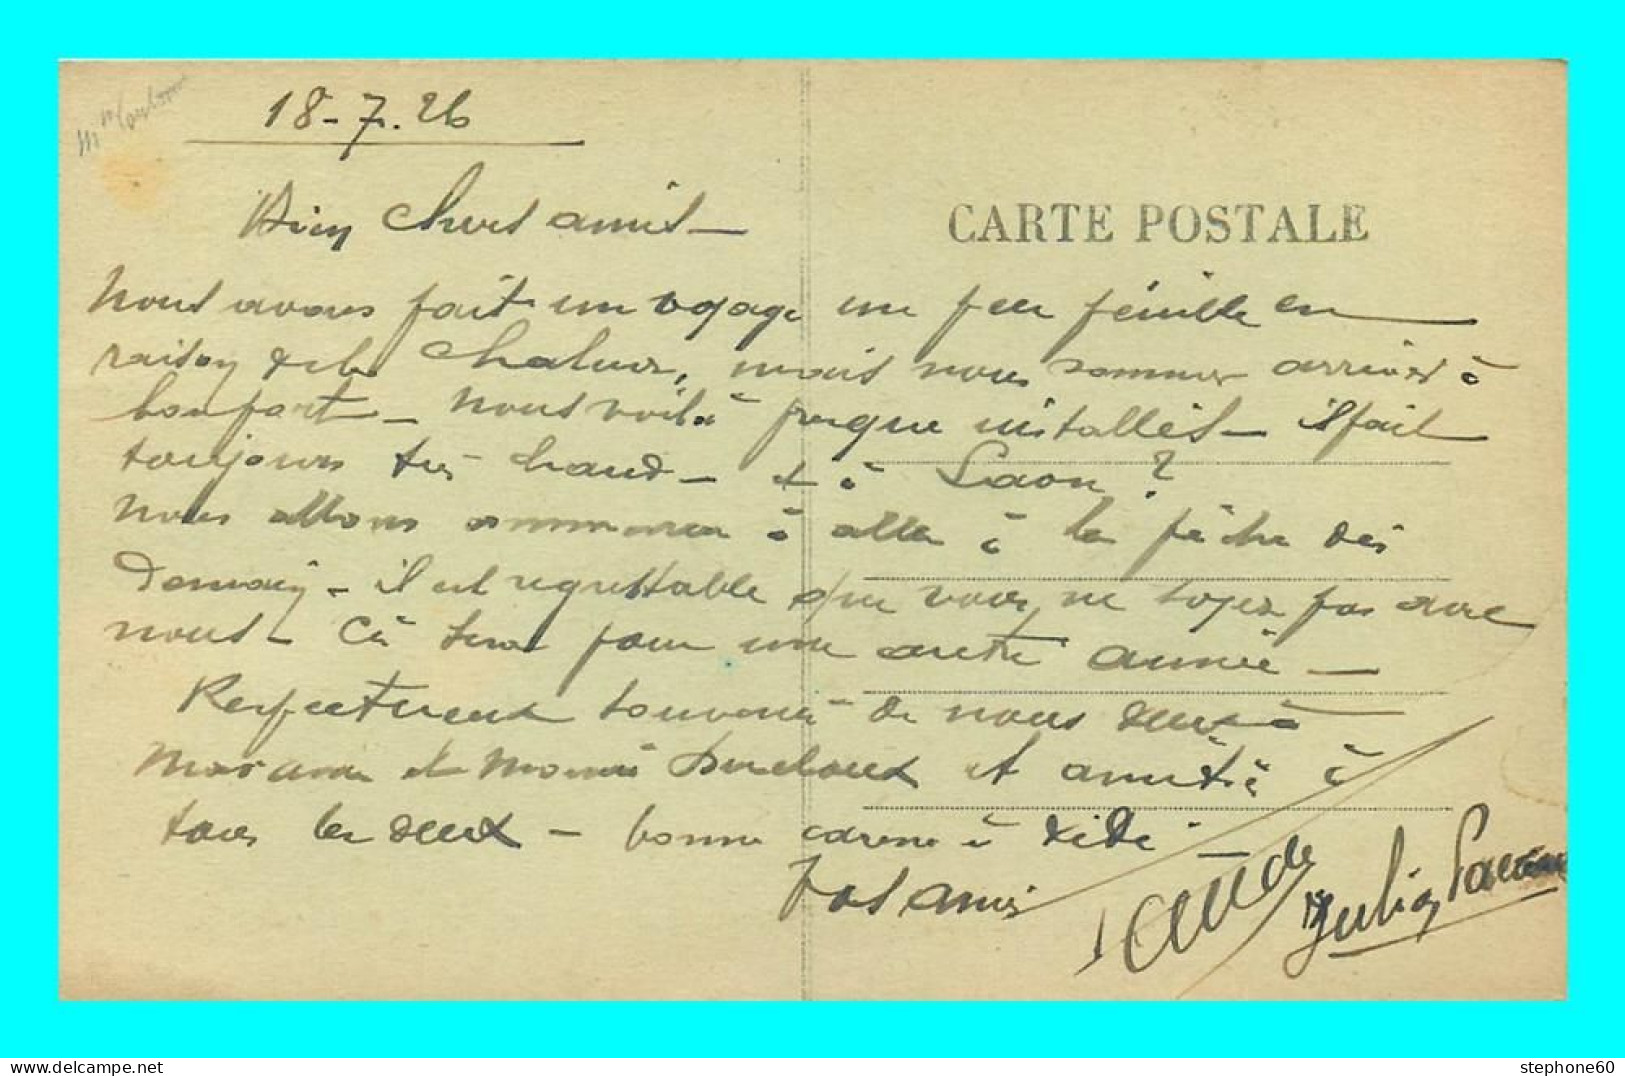 18-7.26
Bien chers amis -
CARTE POSTALE
Nous avons fait un voyage un peu pénible en
raison de la chaleur, mais nous sommes arrivés à
bon port - Nous voilà presque installés - il fait
toujours très chaud - et à Laon ?
Nous allons commencer à aller à la pêche dès
demain - il est regrettable que vous ne soyez pas avec
nous - Ca sera pour une autre année -
Respectueux souvenir de nous deux à
et amitiés à
tous les deux - bonne à Didi -
Vos amis
Julia
stephone60